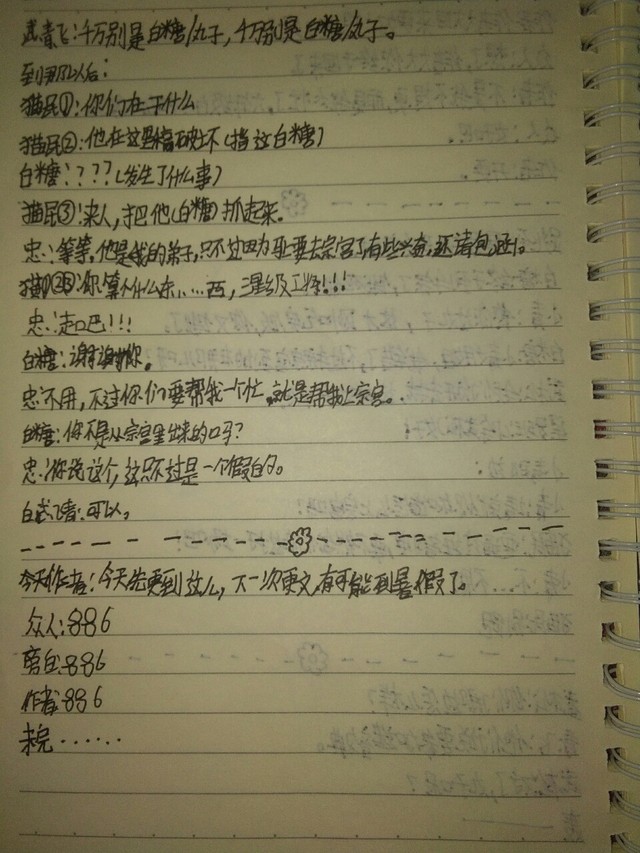 武青飞:千万别是白糖/丸子,千万别是白糖/丸子。
到那以后:
猫民①:你们在干什么
猫民②:他在这里搞破坏(指这白糖)
白糖:???(发生了什么事)
猫民③:来人,把他(白糖)抓起来。
忠:等等,他是我的弟子,只不过因为要去宗宫了,有些兴奋,还请包涵。
猫①②③:你算个什么东……西,星级工将!!!
忠:走吧!!!
白糖:谢谢你。
忠:不用,不过你们要帮我一个忙。就是帮我上宗宫。
白糖:你不是从宗宫里出来的吗?
忠:你说这个,这只不过是一个假的。
白武飞青:可以。
作者:今天先更到这么,下一次更文有可能到暑假了。
众人:886
旁白:886
作者:886
未完······